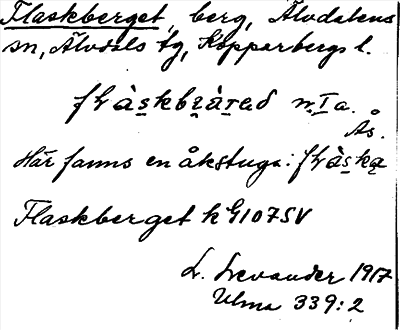 Flaskberget, berg, Älvdalens
sn, Älvdals tg, Kopparbergs l.
n. I a.
Ås.
Här fanns en åkstuga:
Flaskberget k G107SV
L. Levander 1917
Ulma 339:2